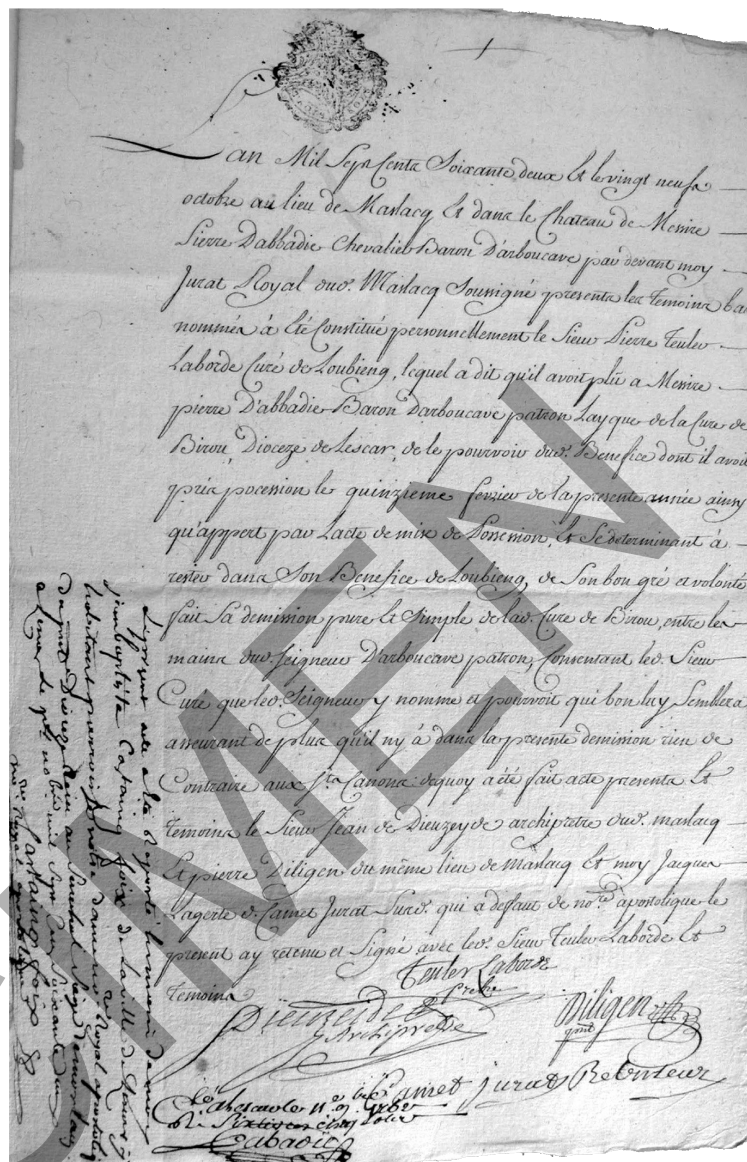 Lan Mil Sept Cents Soixante deux Et le vingt neuf
octobre au lieu de Maslacq Et dans le Chateau de Messire
Pierre D'abbadie Chevalier Baron D'arboucave par devant moy
Jurat Royal dud. Maslacq Soussigné presents les Temoins bas
nommés à été Constitué personnellement le Sieur Pierre Teuler
Laborde Curé de Loubieng, lequel a dit qu'il avoit plû a Messire
pierre D'abbadie Baron Darboucave patron Layque de la Cure de
Birou, Dioceze de Lescar, de le pourvoir dud. Benefice dont il avoit
pris pocession le quinzieme fevrier de la presente année ainsy
qu'appert par Lacte de mise de Possession, Et Se determinant à
rester dans Son Benefice de Loubieng, de Son bon gré et volonté
fait Sa demission pure Et Simple de lad. Cure de Birou, entre les
mains dud. Seigneur D'arboucave patron, Consentant led. Sieur
Curé que led. Seigneur y nomme et pourvoit qui bon luy Semblera
asseurant de plus qu'il ny à dans la presente demission rien de
Contraire aux Sts. Canons: dequoy a été fait acte presents Et
temoins le Sieur Jean de Dieuzeyde archiprêtre dud. maslacq
Et pierre Diligen du même lieu de maslacq Et moy Jacques
Lagerte d. Camet Jurat Surd. qui a deffaut de nore. apostolique le
present ay retenu et Signé avec led. Sieur Teuler Laborde Et
Temoins
Teuler Laborde
Dieuzeide
Archiprete
Diligen
pnt
Camet jurat Retenteur
Le present acte a été Raporté
Jeanbaptiste Castaing foix de la ville de
habitant notre dame nore Royal apostoliq
du Dioceze au Senechal Siege de morlaas
mil Sept Cens Soixante deux
Castaing foix
nore Royal apostolique
Labadie